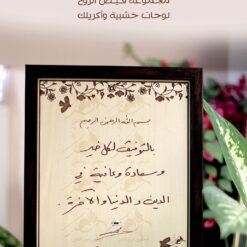 مجموعة فيض الروح
لوحات خشبية وأكريلك
بسم الله الرحمن الرحيم
بالتوفيق لكل خير
وسعادة وعافية في
الدين والدنيا والآخرة.